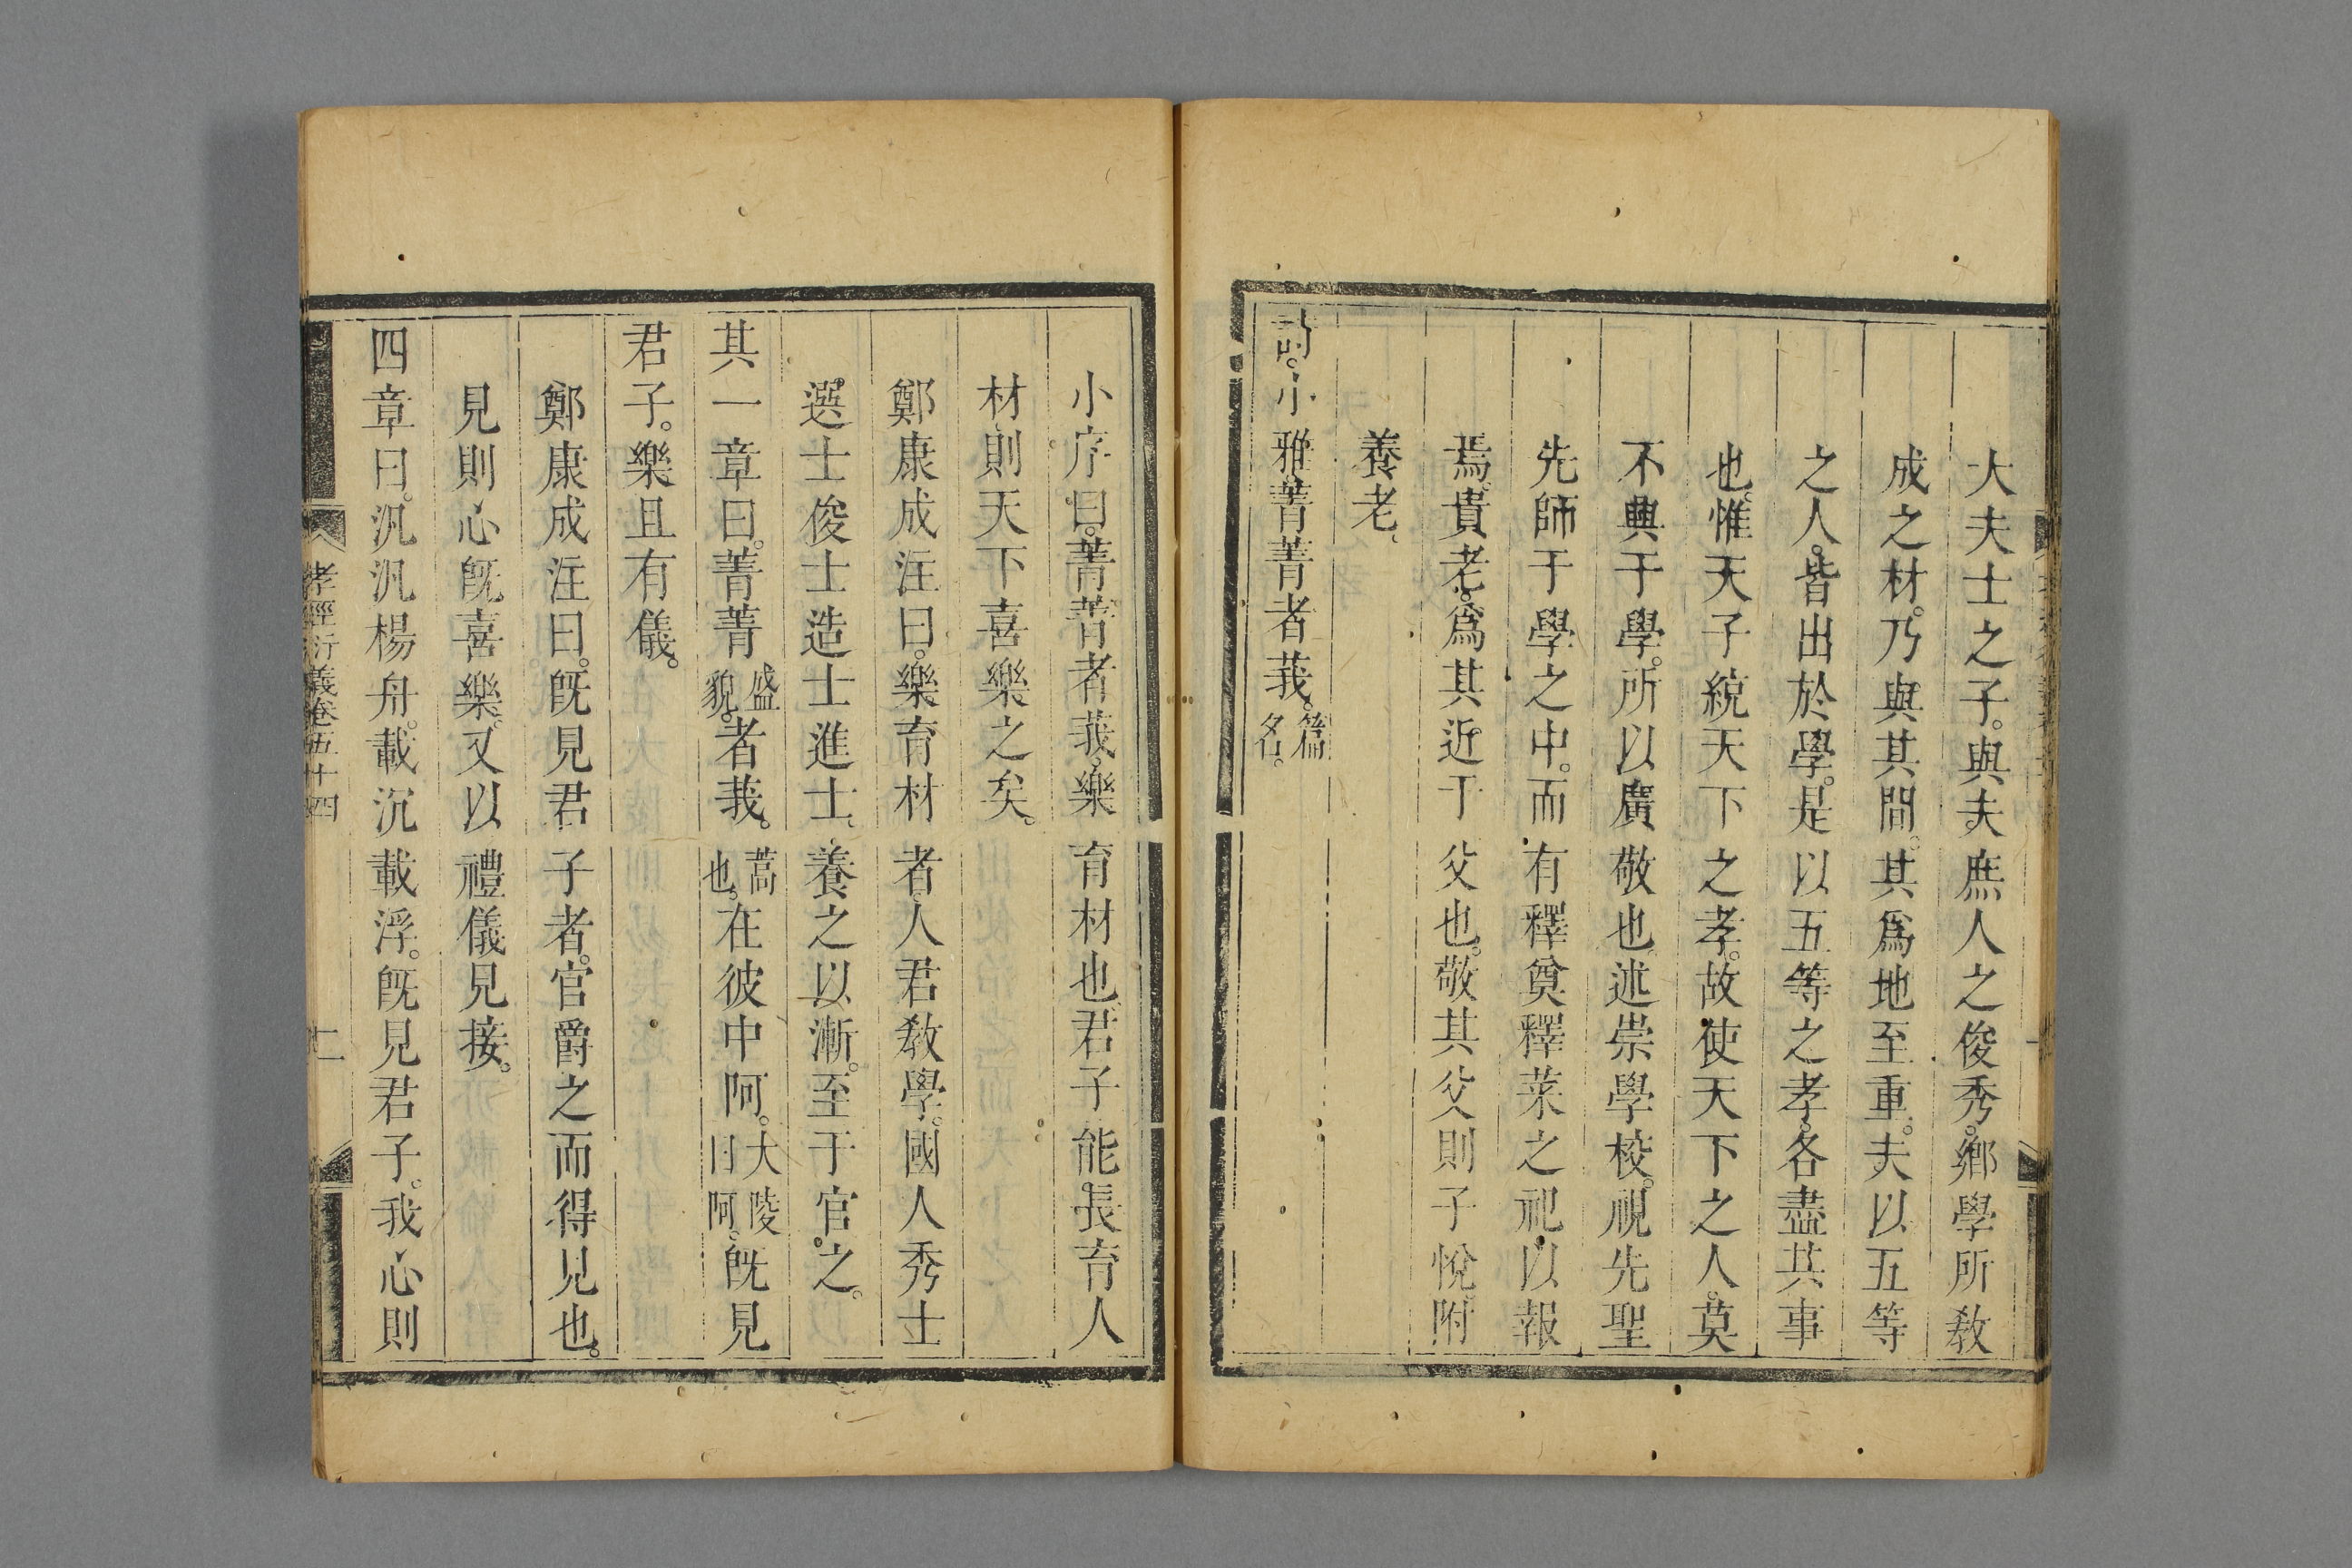 大夫士之子。與夫庶人之俊秀。鄉學所敎
成之材。乃與其間。其爲地至重。夫以五等
之人。皆出於學。是以五等之孝。各盡其事
也。惟天子統天下之孝。故使天下之人。莫
不興于學。所以廣敬也。述崇學校。視先聖
先師于學之中。而有釋奠釋菜之祀。以報
焉。貴老。爲其近于父也。敬其父則子悅。附
養老、
詩。小雅。菁菁者莪。篇名。
小序曰。菁菁者莪。樂育材也。君子能長育人
材、則天下喜樂之矣。
鄭康成注曰。樂育材者、人君敎學。國人秀士
選士俊士造士進士、養之以漸。至于官之。
其一章曰。菁菁盛貌。者莪。蒿也。在彼中阿。大陵曰阿。旣見
君子。樂且有儀。
鄭康成注曰。旣見君子者。官爵之而得見也。
見則心旣喜樂。又以禮儀見接。
四章曰。汎汎楊舟。載沉載浮。旣見君子。我心則
孝經衍義卷五十四 十二